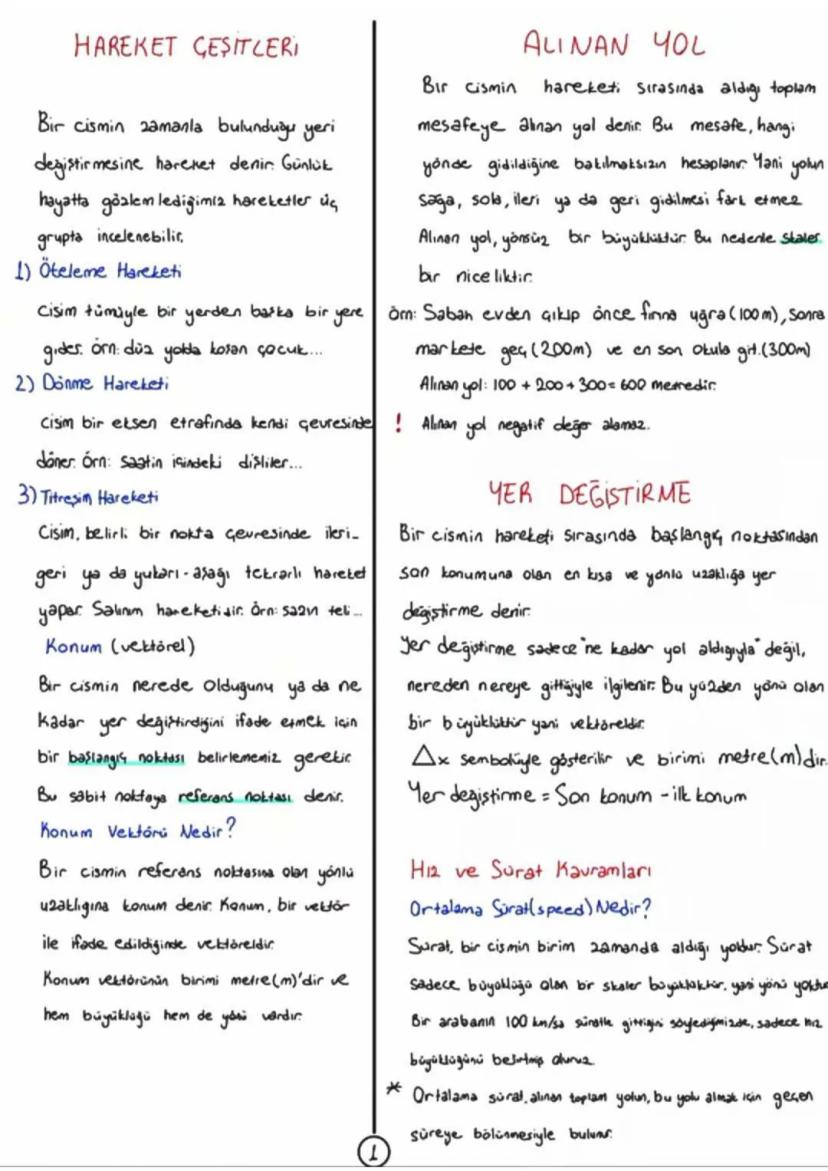 HAREKET ÇEŞİTLERİ
Bir cismin zamanla bulunduğu yeri
değiştirmesine hareket denir. Günlük
hayatta gözlemlediğimiz hareketler üç
grupta incelenebilir.
1) Öteleme Hareketi
Cisim tümüyle bir yerden başka bir yere
gider. örn: düz yolda koşan çocuk...
2) Dönme Hareketi
Cisim bir eksen etrafında kendi çevresinde
döner. Örn: saatin içindeki dişliler...
3) Titreşim Hareketi
Cisim, belirli bir nokta çevresinde ileri-
geri ya da yukarı-aşağı tekrarlı hareket
yapar. Salınım hareketidir. Örn: sazın teli...
Konum (vektörel)
Bir cismin nerede olduğunu ya da ne
kadar yer değiştirdiğini ifade etmek için
bir başlangıç noktası belirlememiz gerekir.
Bu sabit noktaya referans noktası denir.
Konum Vektörü Nedir?
Bir cismin referans noktasına olan yönlü
uzaklığına konum denir. Konum, bir vektör
ile ifade edildiğinde vektöreldir.
Konum vektörünün birimi metre(m)'dir ve
hem büyüklüğü hem de yönü vardır.
ALINAN YOL
Bir cismin hareketi sırasında aldığı toplam
mesafeye alınan yol denir. Bu mesafe, hangi
yönde gidildiğine bakılmaksızın hesaplanır. Yani yolun
sağa, sola, ileri ya da geri gidilmesi fark etmez
Alınan yol, yönsüz bir büyüklüktür. Bu nedenle skaler
bir niceliktir.
örn: Sabah evden çıkıp önce fırına uğra (100m), sonra
markete geç (200m) ve en son okula git. (300m)
Alınan yol: 100 + 200 + 300 = 600 metredir.
! Alınan yol negatif değer alamaz.
YER DEĞİŞTİRME
Bir cismin hareketi sırasında başlangıç noktasından
son konumuna olan en kısa ve yönlü uzaklığa yer
değiştirme denir.
Yer değiştirme sadece "ne kadar yol aldığıyla" değil,
nereden nereye gittiğiyle ilgilenir. Bu yüzden yönü olan
bir büyüklüktür yani vektöreldir.
Δx sembolüyle gösterilir ve birimi metre(m)dir.
Yer değiştirme = Son konum - ilk konum
Hız ve Sürat Kavramları
Ortalama Sürat(speed) Nedir?
Sürat, bir cismin birim zamanda aldığı yoldur. Sürat
sadece büyüklüğü olan bir skaler büyüklüktür, yani yönü yoktur
Bir arabanın 100 km/sa süratle gittiğini söylediğimizde, sadece hız
büyüklüğünü belirtmiş oluruz.
* Ortalama sürat, alınan toplam yolun, bu yolu almak için geçen
süreye bölünmesiyle bulunur.
1